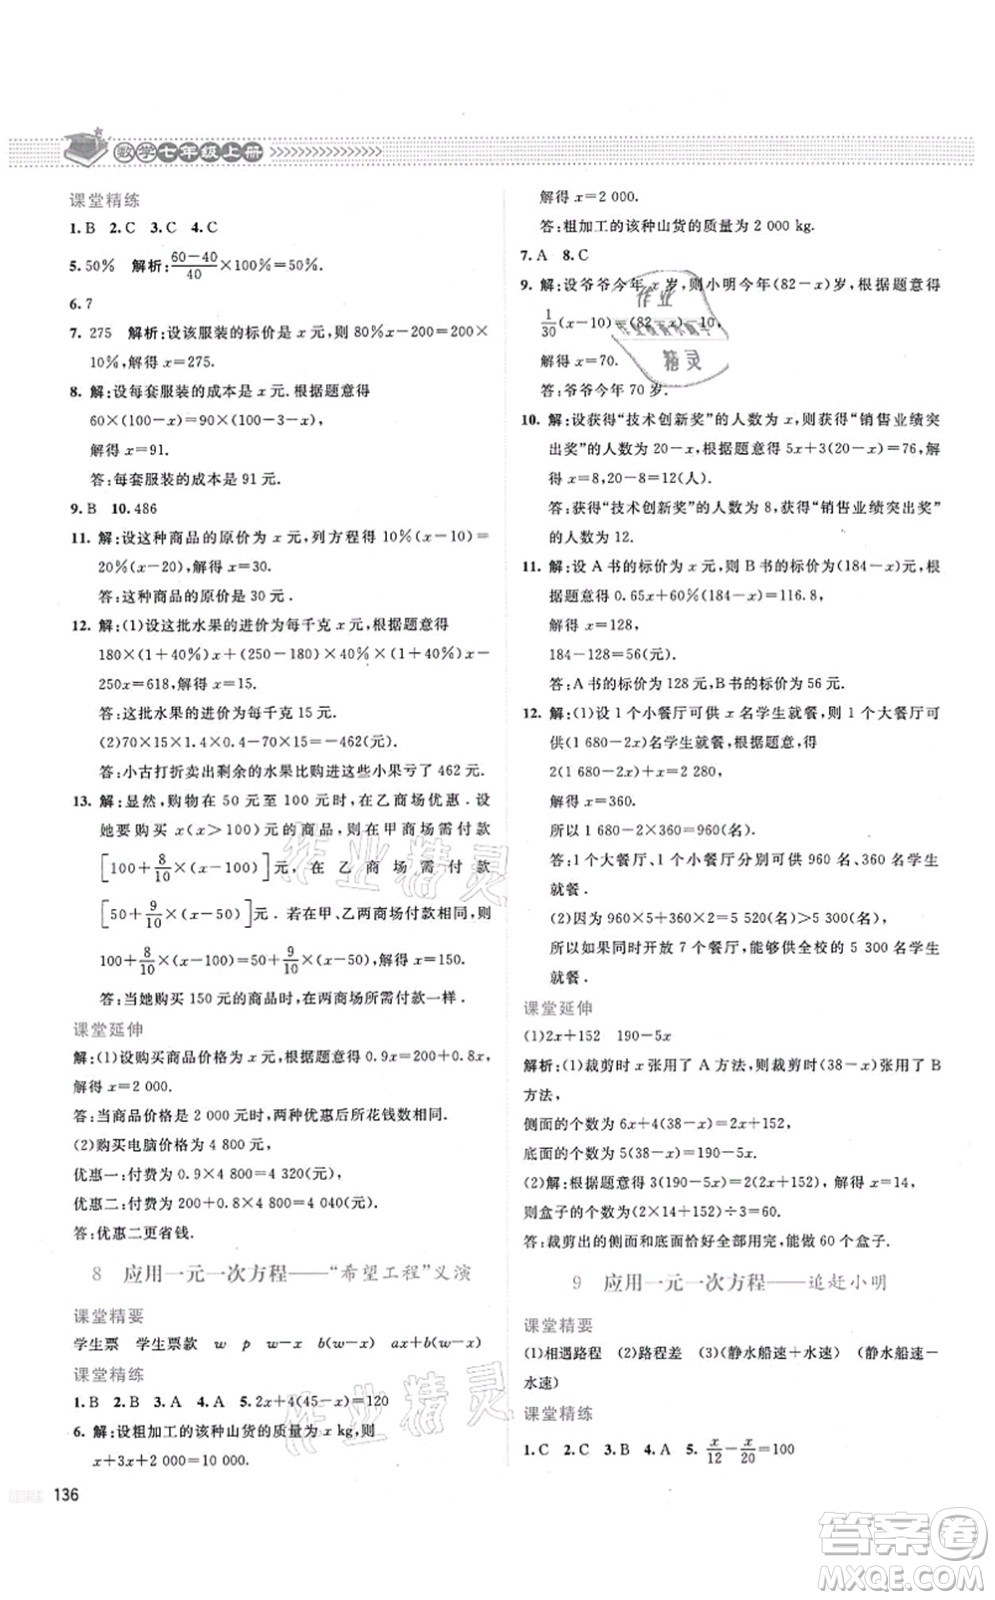 数学七年级上册
课堂精练
1. B 2. C 3. C 4. C
5. 50% 解析:(60-40)/40×100%=50%.
6. 7
7. 275 解析:设该服装的标价是 x 元,则 80%x-200=200×
10%,解得 x=275.
8. 解:设每套服装的成本是 x 元.根据题意得
60×(100-x)=90×(100-10-x),
解得 x=91.
答:每套服装的成本是 91 元.
9. B 10. 486
11. 解:设这种商品的原价为 x 元,列方程得 10%(x-10)=
20%(x-20),解得 x=30.
答:这种商品的原价是 30 元.
12. 解:(1)设这批水果的进价为每千克 x 元,根据题意得
180×(1+40%)x+(250-180)×(1+40%)x×40%x-
250x=618,解得 x=15.
答:这批水果的进价为每千克 15 元.
(2)70×15×1.4×0.4-70×15=-462(元)
答:小古打折卖出剩余的水果比购进这些水果亏了 462 元.
13. 解:显然,购物在 50 元至 100 元时,在乙商场优惠.设
她要购买 x(x>100)元的商品,则在甲商场需付款
[100+8/10×(x-100)]元,在乙商场需付款
[50+9/10×(x-50)]元.若在甲、乙两商场付款相同,则
100+8/10×(x-100)=50+9/10×(x-50),解得 x=150.
答:当她购买 150 元的商品时,在两商场所需付款一样.
课堂延伸
解:(1)设购买商品价格为 x 元,根据题意得 0.9x=200+0.8x,
解得 x=2 000.
答:当商品价格是 2 000 元时,两种优惠后所花钱数相同.
(2)购买电脑价格为 4 800 元,
优惠一:付费为 0.9×4 800=4 320(元),
优惠二:付费为 200+0.8×4 800=4 040(元),
答:优惠二更省钱.
8 应用一元一次方程——“希望工程”义演
课堂精要
学生票 学生票款 w p w-x b(w-x) ax+b(w-x)
课堂精练
1. B 2. B 3. A 4. A 5. 2x+4(45-x)=120
6. 解:设粗加工的该种山货的质量为 x kg,根据题意得
x+3x+2 000=10 000.
136
解得 x=2 000.
答:粗加工的该种山货的质量为 2 000 kg.
7. A 8. C
9. 解:设爷爷今年 x 岁,则小明今年(82-x)岁,根据题意得
1/30(x-10)=(82-x)-10,
解得 x=70.
答:爷爷今年 70 岁.
10. 解:设获得“技术创新奖”的人数为 x,则获得“销售业绩突
出奖”的人数为 20-x,根据题意得 5x+3(20-x)=76,
解得 x=8,20-8=12(人).
答:获得“技术创新奖”的人数为 8,获得“销售业绩突出奖”的
人数为 12.
11. 解:设 A 书的标价为 x 元,则 B 书的标价为(184-x)元,根
据题意得 0.65x+60%(184-x)=116.8,
解得 x=128,
184-128=56(元).
答:A 书的标价为 128 元,B 书的标价为 56 元.
12. 解:(1)设 1 个小餐厅可供 x 名学生就餐,则 1 个大餐厅可
供(1 680-2x)名学生就餐,根据题意得
2(1 680-2x)+x=2 280,
解得 x=360.
所以 1 680-2×360=960(名).
答:1 个大餐厅、1 个小餐厅分别可供 960 名、360 名学生
就餐.
(2)因为 960×5+360×2=5 520(名)>5 300(名),
所以如果同时开放 7 个餐厅,能够供全校的 5 300 名学生
就餐.
课堂延伸
(1)2x+152 190-5x
解析:(1)裁剪时 x 张用了 A 方法,则裁剪时(38-x)张用了 B
方法,
侧面的个数为 6x+4(38-x)=2x+152,
底面的个数为 5(38-x)=190-5x.
(2)解:根据题意得 3(190-5x)=2(2x+152),解得 x=14,
则盒子的个数为(2×14+152)÷3=60.
答:裁剪出的侧面和底面恰好全部用完,能做 60 个盒子.
9 应用一元一次方程——追赶小明
课堂精要
(1)相遇路程 (2)路程差 (3)(静水船速+水速) (静水船速-
水速)
课堂精练
1. C 2. C 3. B 4. A 5. x/12-x/20=100
作业精灵
作业精灵
作业
精灵
答案圈
MXQE.COM